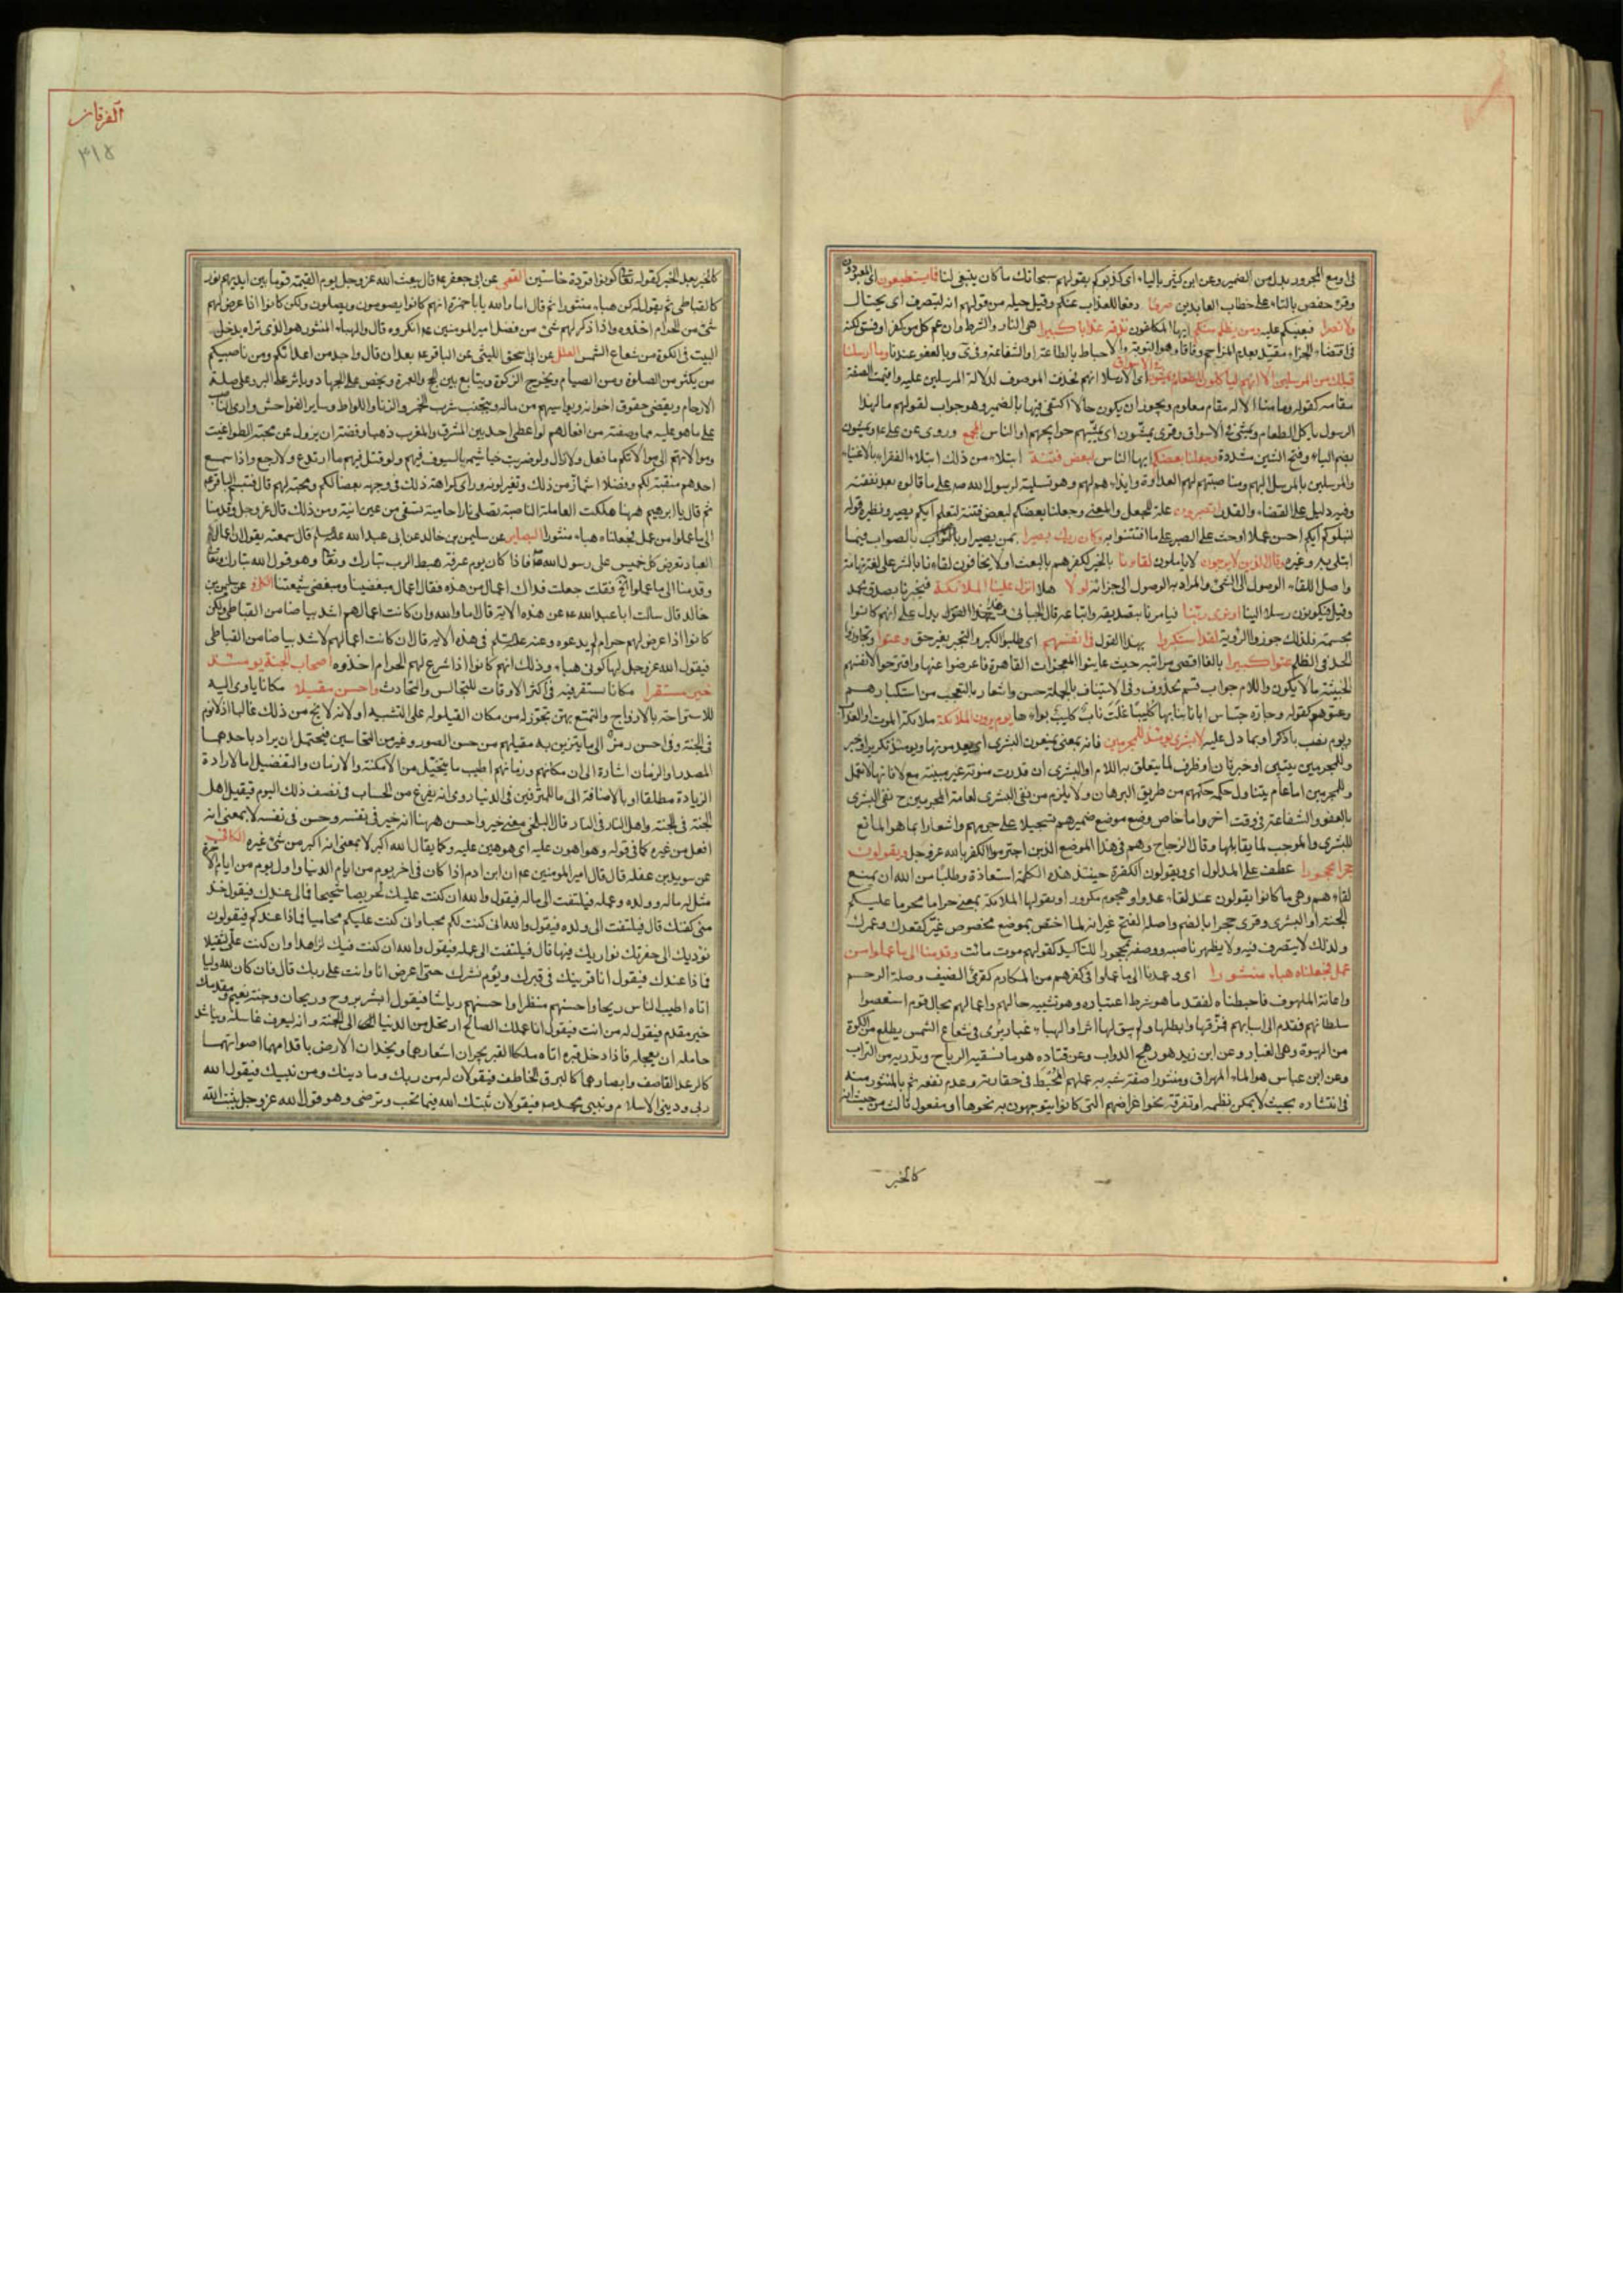 او مع المجرور بدل من الضمير وعن ابن كثير بالياء اى كذبوكم بقولهم سبحانك ما كان ينبغى لنا فما يستطيعون اى المعبودون
وقرء حفص بالتاء على خطاب العابدين صرفا دفعا للعذاب عنكم وقيل حيلة من قولهم انه ليتصرف اى يحتال
ولا نصرا فيعينكم عليه ومن يظلم منكم ايها المكلفون نذقه عذابا كبيرا هى النار والشرط وان عم كل من كفر او فسق لكنه
فى اقتضاء الجزاء مقيد بعدم المزاحم وفاقا وهو التوبة والاحباط بالطاعة او الشفاعة وبالعفو عندنا وما ارسلنا
قبلك من المرسلين الا انهم لياكلون الطعام ويمشون فى الاسواق اى الا رسلا انهم فحذف الموصوف لدلالة المرسلين عليه واقيمت الصفة
مقامه كقوله وما منا الا له مقام معلوم ويجوز ان يكون حالا اكتفى فيها بالضمير وهو جواب لقولهم ما لهذا
الرسول ياكل الطعام ويمشى فى الاسواق وقرى يمشّون اى يمشّيهم حوايجهم او الناس المجمع وروى عن على ع ويمشون
بضم الياء وفتح الشين مشددة وجعلنا بعضكم ايها الناس لبعض فتنة ابتلاء من ذلك ابتلاء الفقراء بالاغنياء
والمرسلين بالمرسل اليهم ومناصبتهم لهم العداوة وايذائهم لهم وهو تسلية لرسول الله صه على ما قالوه بعد نقضه
وفيه دليل على القضاء والقدر اتصبرون علة للجعل والمعنى وجعلنا بعضكم لبعض فتنة لنعلم ايكم يصبر ونظيره قوله
ليبلوكم ايكم احسن عملا او حث على الصبر على ما افتتنوا به وكان ربك بصيرا بمن يصبر او بالصواب فيما
ابتلى به وغيره وقال الذين لا يرجون لا ياملون لقاءنا بالخير لكفرهم بالبعث او لا يخافون لقاءنا بالشر على لغة تهامة
واصل اللقاء الوصول الى الشئ والمراد به الوصول الى جزائه لولا هلا انزل علينا الملائكة فيخبرنا بصدق محمد
وقيل فيكونون رسلا الينا او نرى ربنا فيامرنا بتصديقه واتباعه قال الجبائى وهذا القول يدل على انهم كانوا
مجسمة فلذلك جوزوا الروية لقد استكبروا بهذا القول فى انفسهم اى طلبوا الكبر والتجبر بغير حق وعتوا وتجاوزوا
الحد فى الظلم عتوا كبيرا بالغا اقصى مراتبه حيث عاينوا المعجزات القاهرة فاعرضوا عنها واقترحوا لانفسهم
الخبيثة ما لا يكون واللام جواب قسم محذوف وفى الاستيناف بالجملة حسن واشعار بالتعجب من استكبارهم
وعتوهم كقوله وجارة جساس ابانا بنابها كليبا غلت ناب كليب بواءها يوم يرون الملائكة ملائكة الموت او العذاب
ويوم نصب باذكر او بما دل عليه لا بشرى يومئذ للمجرمين فانه بمعنى يمنعون البشرى او يعدمونها ويومئذ تكرير او خبر
وللمجرمين تبيين او خبر ثان او ظرف لما يتعلق به اللام او البشرى ان قدرت منونة غير مبنية مع لا فانها لا تعمل
وللمجرمين اما عام يتناول حكمه حكمهم من طريق البرهان ولا يلزم من نفى البشرى لعامة المجرمين ح نفى البشرى
بالعفو والشفاعة فى وقت اخر واما خاص وضع موضع ضميرهم تسجيلا على جرمهم واشعارا بما هو المانع
للبشرى والموجب لما يقابلها وقال الزجاج وهم فى هذا الموضع الذين اجترموا الكفر بالله عز وجل ويقولون
حجرا محجورا عطف على المدلول اى ويقولون الكفرة حينئذ هذه الكلمة استعاذة وطلبا من الله ان يمنع
لقاءهم وهى ما كانوا يقولون عند لقاء عدو او هجوم مكروه او يقولها الملائكة بمعنى حراما محرما عليكم
الجنة او البشرى وقرى حجرا بالضم واصله الفتح غير انه لما اختص بموضع مخصوص غيّر كقعدك وعمرك
ولذلك لا يتصرف فيه ولا يظهر ناصبه ووصفه بمحجورا للتاكيد كقولهم موت مائت وقدمنا الى ما عملوا من
عمل فجعلناه هباء منثورا اى وعمدنا الى ما عملوا فى كفرهم من المكارم كقرى الضيف وصلة الرحم
واعانة الملهوف فاحبطناه لفقد ما هو شرط اعتباره وهو تشبيه حالهم واعمالهم بحال قوم استعصوا
سلطانهم فقدم الى اسبابهم فمزقها وابطلها ولم يبق لها اثرا والهباء غبار يرى فى شعاع الشمس يطلع من الكوة
من الهبوة وهى الغبار وعن ابن زيد هو رهج الدواب وعن قتاده هو ما تسقيه الرياح وتذريه من التراب
وعن ابن عباس هو الماء المهراق ومنثورا صفته شبه به عملهم المحبط فى حقارته وعدم نفعه ثم بالمنثور منه
فى انتشاره بحيث لا يمكن نظمه او تفرقه نحو اغراضهم التى كانوا يتوجهون به نحوها او مفعول ثالث من حيث انه
كالخبر
الفرقان
٣١٥
كالخبر بعد الخبر كقوله تعالى كونوا قردة خاسئين القمى عن ابى جعفر ع قال يبعث الله عز وجل يوم القيمة قوما بين ايديهم نور
كالقباطى ثم يقول له كن هباء منثورا ثم قال اما والله يا با حمزة انهم كانوا يصومون ويصلون ولكن كانوا اذا عرض لهم
شئ من الحرام اخذوه واذا ذكر لهم شئ من فضل امير المومنين ع انكروه قال والهباء المنثور هو الذى تراه يدخل
البيت فى الكوة من شعاع الشمس العلل عن ابى اسحق الليثى عن الباقر ع بعد ان قال واجد من اعدائكم ومن ناصبيكم
من يكثر من الصلوة ومن الصيام ويخرج الزكوة ويتابع بين الحج والعمرة ويحض على الجهاد ويأثر على البر وعلى صلة
الارحام ويقضى حقوق اخوانه ويواسيهم من ماله ويتجنب شرب الخمر والزنا واللواط وساير الفواحش وارى الناصب
على ما هو عليه مما وصفته من افعالهم لو اعطى احد بين المشرق والمغرب ذهبا وفضة ان يزول عن محبة الطواغيت
وموالاتهم الى موالاتكم ما فعل ولا زال ولو ضربت خياشيمه بالسيوف فيهم ولو قتل فيهم ما ارتدع ولا رجع واذا سمع
احدهم منقبة لكم وفضلا اشمأز من ذلك وتغير لونه وراى كراهة ذلك فى وجهه بغضا لكم ومحبة لهم قال فتبسم الباقر ع
ثم قال يا ابرهيم ههنا هلكت العاملة الناصبة تصلى نارا حامية تسقى من عين انية ومن ذلك قال عز وجل وقدمنا
الى ما عملوا من عمل فجعلناه هباء منثورا البصاير عن سليمن بن خالد عن ابى عبد الله عليه السلم قال سمعته يقول ان اعمال
العباد تعرض كل خميس على رسول الله ص فاذا كان يوم عرفة هبط الرب تبارك وتعالى وهو قول الله تبارك وتعالى
وقدمنا الى ما عملوا الاية فقلت جعلت فداك اعمال من هذه فقال اعمال مبغضينا ومبغضى شيعتنا الكافى عن سليمن بن
خالد قال سالت ابا عبد الله ع عن هذه الاية قال اما والله وان كانت اعمالهم اشد بياضا من القباطى ولكن
كانوا اذا عرض لهم حرام لم يدعوه وعنه عليه السلم فى هذه الاية قال ان كانت اعمالهم لاشد بياضا من القباطى
فيقول الله عز وجل لها كونى هباء وذلك انهم كانوا اذا شرع لهم الحرام اخذوه اصحاب الجنة يومئذ
خير مستقرا مكانا يستقر فيه فى اكثر الاوقات للتجالس والتحادث واحسن مقيلا مكانا ياوى اليه
للاستراحة بالازواج والتمتع بهن تجوز له من مكان القيلولة على التشبيه او لانه لا يخ من ذلك غالبا اذ لا نوم
فى الجنة وفى احسن رمز الى ما يتزين به مقيلهم من حسن الصور وغيره من التحاسين فيحتمل ان يراد باحدهما
المصدر او الزمان اشارة الى ان مكانهم وزمانهم اطيب ما يتخيل من الامكنة والازمان والتفضيل اما لارادة
الزيادة مطلقا او بالاضافة الى ما للمترفين فى الدنيا روى انه يفرغ من الحساب فى نصف ذلك اليوم فيقيل اهل
الجنة فى الجنة واهل النار فى النار قال البلخى معنى خير واحسن ههنا انه خير فى نفسه وحسن فى نفسه لا بمعنى انه
افعل من غيره كما فى قوله وهو اهون عليه اى هو هين عليه وكما يقال الله اكبر لا بمعنى انه اكبر من شئ غيره الكافى
عن سويد بن غفله قال قال امير المومنين ع ان ابن ادم اذا كان فى اخر يوم من ايام الدنيا واول يوم من ايام الاخرة
مثل له ماله وولده وعمله فيلتفت الى ماله فيقول والله ان كنت عليك لحريصا شحيحا فمالى عندك فيقول خذ
منى كفنك قال فيلتفت الى ولده فيقول والله انى كنت لكم محبا وانى كنت عليكم محاميا فماذا عندكم فيقولون
نوديك الى حفرتك نواريك فيها قال فيلتفت الى عمله فيقول والله ان كنت فيك لزاهدا وان كنت على لثقيلا
فماذا عندك فيقول انا قرينك فى قبرك ويوم نشرك حتى اعرض انا وانت على ربك قال فان كان لله وليا
اتاه اطيب الناس ريحا واحسنهم منظرا واحسنهم رياشا فيقول ابشر بروح وريحان وجنة نعيم ومقدمك
خير مقدم فيقول له من انت فيقول انا عملك الصالح ارتحل من الدنيا الى الجنة وانه ليعرف غاسله ويناشد
حامله ان يعجله فاذا دخل قبره اتاه ملكا القبر يجران اشعارهما ويخدان الارض باقدامهما اصواتهما
كالرعد القاصف وابصارهما كالبرق الخاطف فيقولان له من ربك وما دينك ومن نبيك فيقول الله
ربى ودينى الاسلام ونبيى محمد صه فيقولان ثبتك الله فيما تحب وترضى وهو قول الله عز وجل يثبت الله